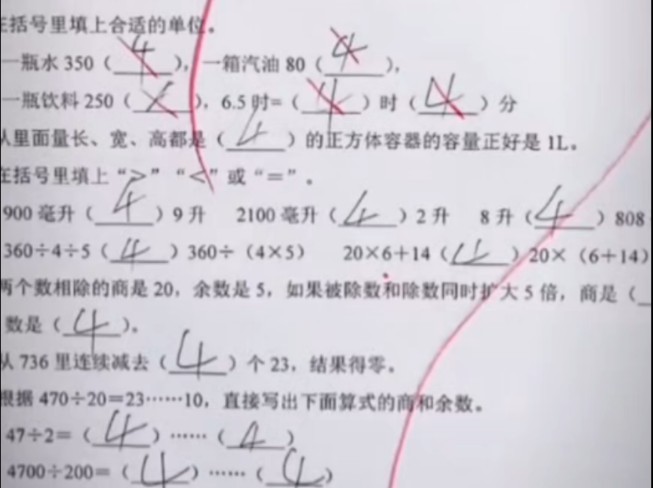 在括号里填上合适的单位。
一瓶水350（4），一箱汽油80（4），
一瓶饮料250（4），6.5时=（4）时（4）分
从里面量长、宽、高都是（4）的正方体容器的容量正好是1L。
在括号里填上“>”“<”或“=”。
900毫升（4）9升 2100毫升（4）2升 8升（4）808
360÷4÷5（4）360÷（4×5） 20×6+14（4）20×（6+14）
两个数相除的商是20，余数是5，如果被除数和除数同时扩大5倍，商是（
数是（4）。
从736里连续减去（4）个23，结果得零。
根据470÷20=23……10，直接写出下面算式的商和余数。
47÷2=（4）……（4）
4700÷200=（4）……（4）